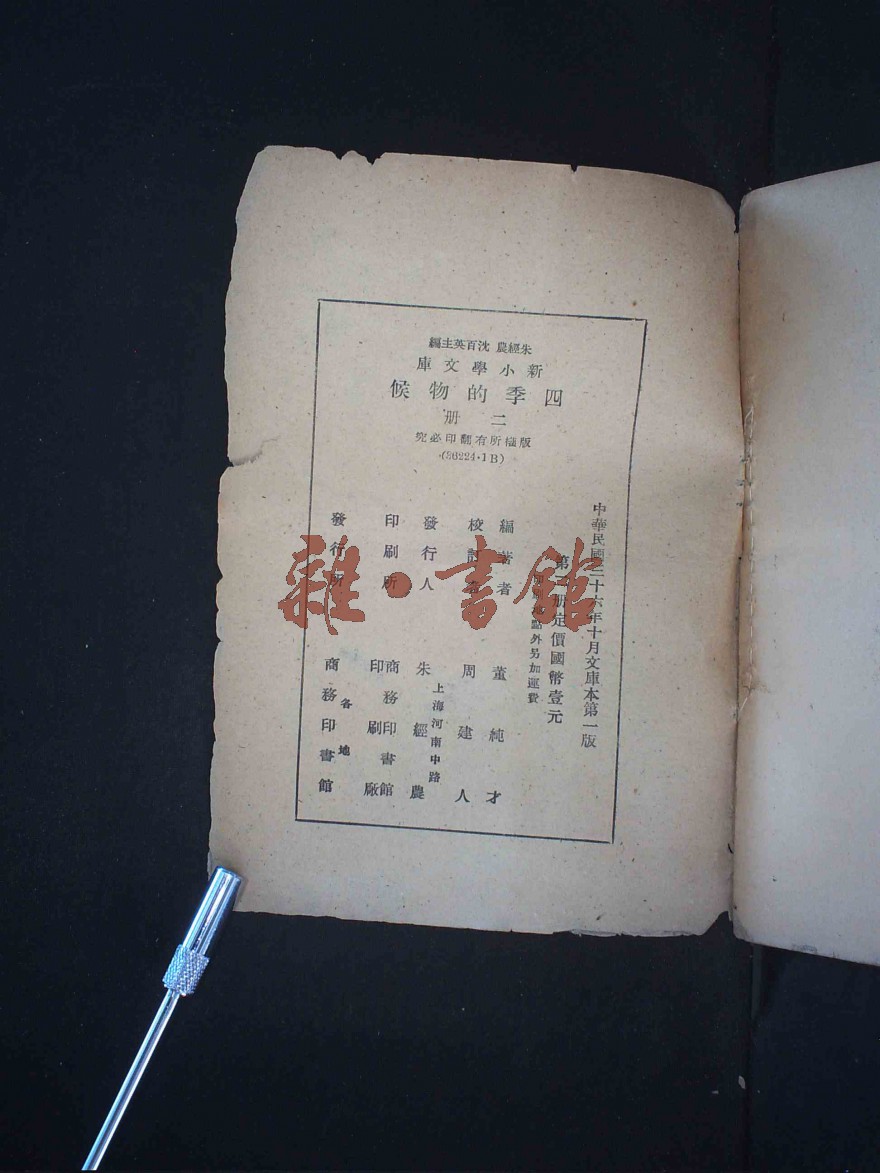 朱經農 沈百英主編
新小學文庫
四季的物候
二册
版權所有翻印必究
(86224·1B)
中華民國三十六年十月文庫本第一版
第二册定價國幣壹元
點外另加運費
編著者 董純才
校訂者 周建人
上海河南中路
發行人 朱經農
印刷所 商務印書館印刷廠
各地
發行所 商務印書館
雜·書館